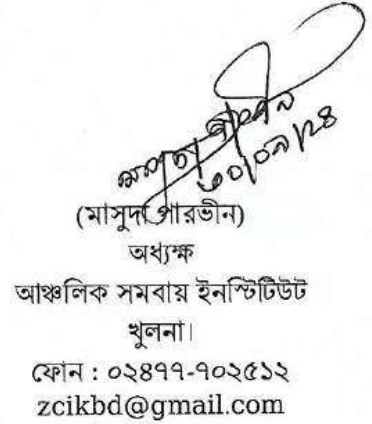 মাসুদা পারভীন
৩০/০৯/২৪
(মাসুদা পারভীন)
অধ্যক্ষ
আঞ্চলিক সমবায় ইনস্টিটিউট
খুলনা।
ফোন : ০২৪৭৭-৭০২৫১২
zcikbd@gmail.com